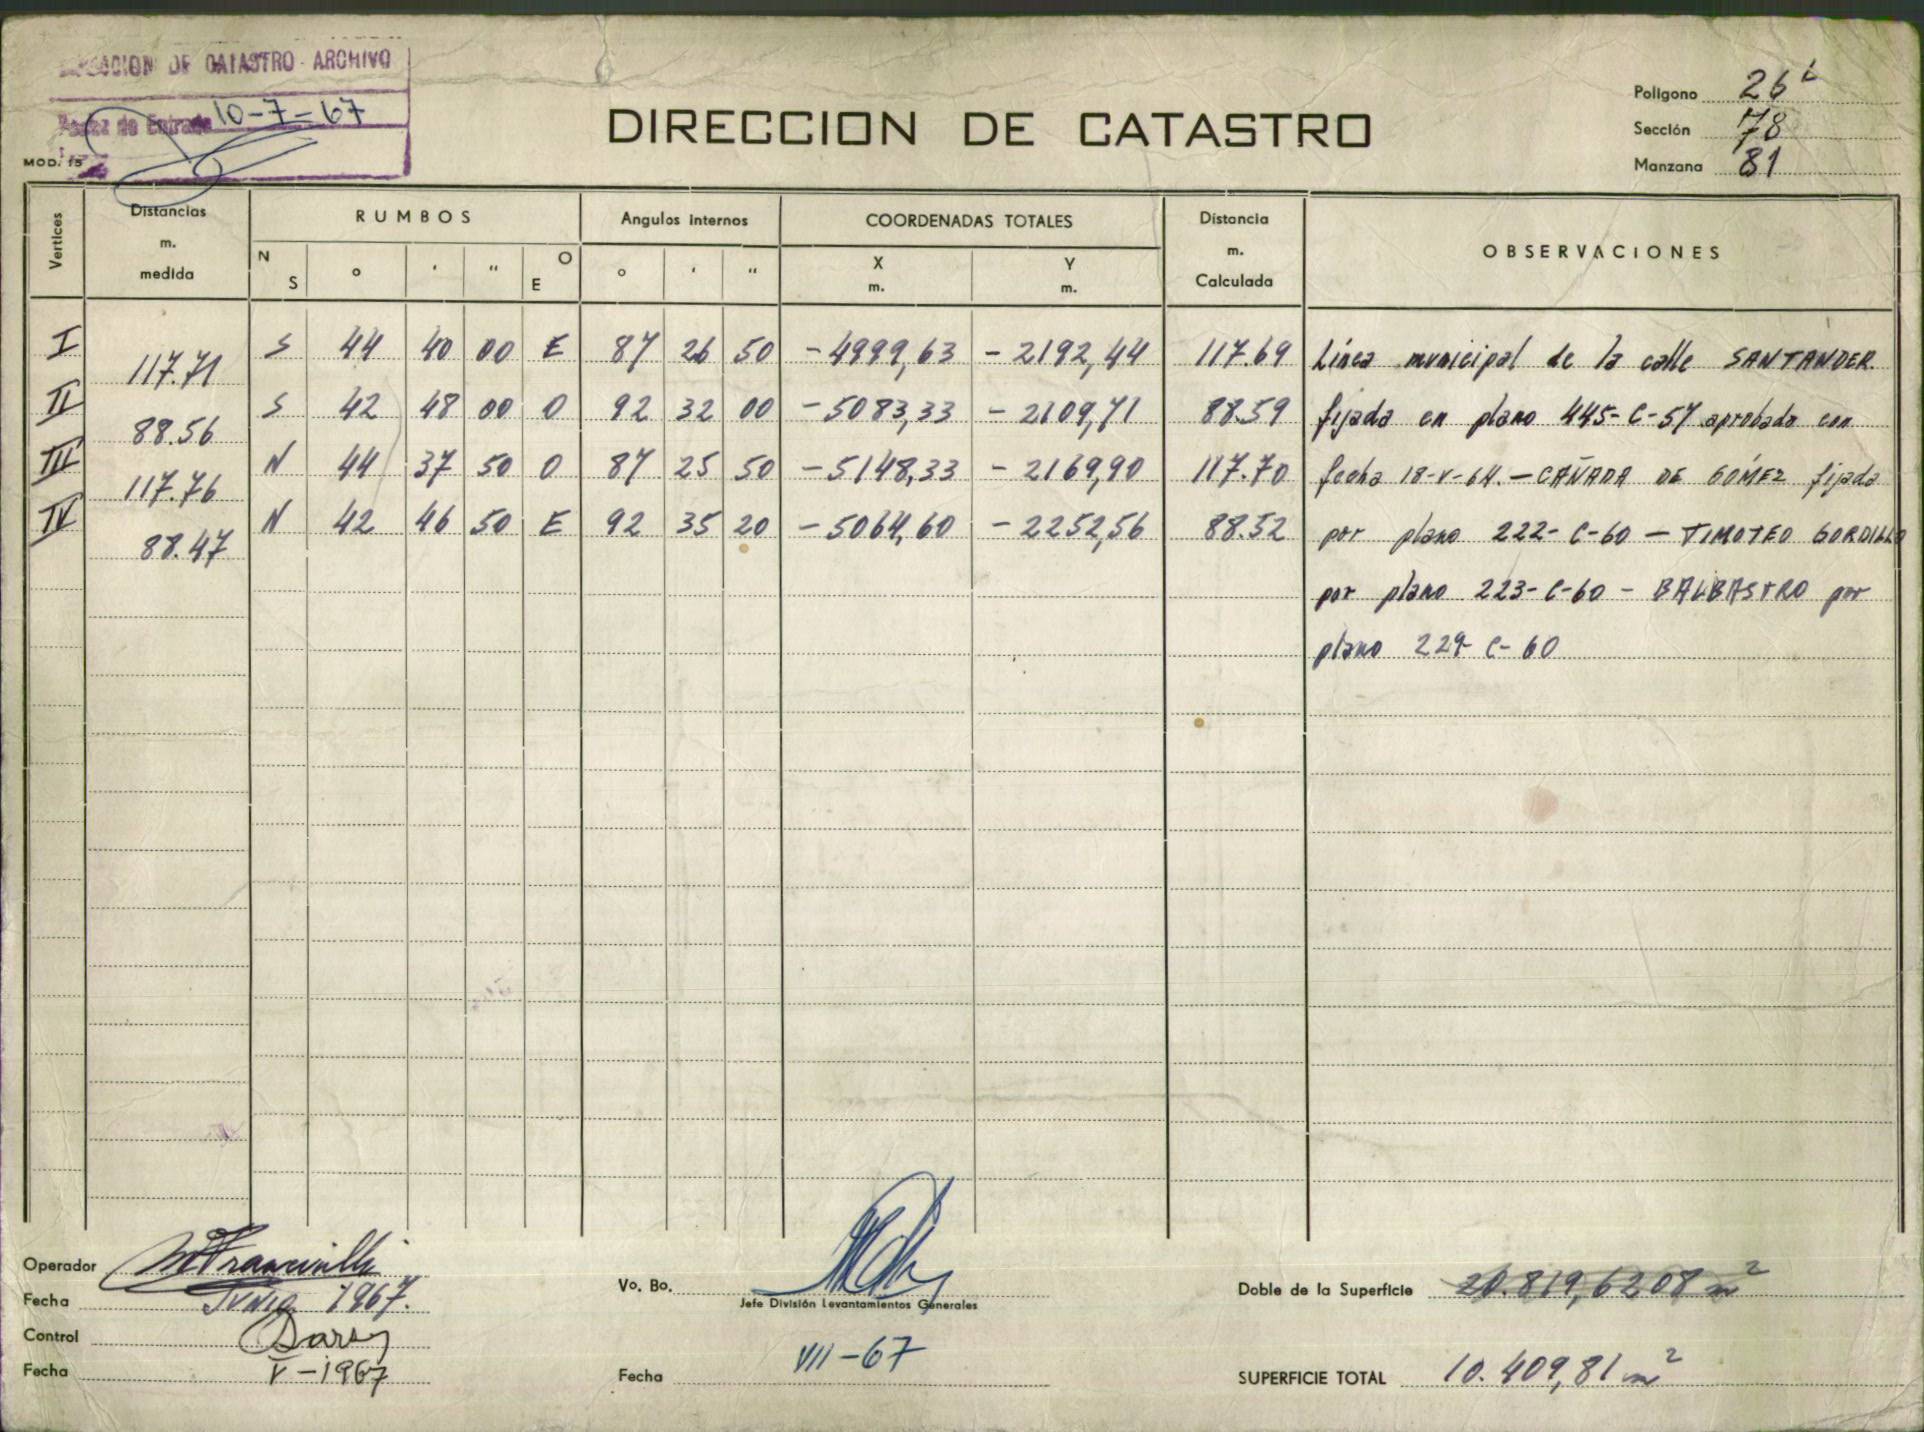 DIRECCION DE CATASTRO - ARCHIVO
Fecha de Entrada 10-7-67
MOD. 15
DIRECCION DE CATASTRO
Polígono 26
Sección 78
Manzana 81
Vertices Distancias m. medida RUMBOS Angulos internos COORDENADAS TOTALES Distancia m. Calculada OBSERVACIONES
N S ° ' " O E ° ' " X m. Y m.
I 117.71 S 44 40 00 E 87 26 50 -4999,63 -2192,44 117.69 Línea municipal de la calle SANTANDER
II 88.56 S 42 48 00 O 92 32 00 -5083,33 -2109,71 88.59 fijada en plano 445-C-57 aprobado con
III 117.76 N 44 37 50 O 87 25 50 -5148,33 -2169,90 117.70 fecha 18-V-64.- CAÑADA DE GÓMEZ fijada
IV 88.47 N 42 46 50 E 92 35 20 -5064,60 -2252,56 88.52 por plano 222-C-60 - TIMOTEO GORDILLO
por plano 223-C-60 - BALBASTRO por
plano 229-C-60
Operador
Fecha Junio 1967.
Control
Fecha V-1967
Vo. Bo.
Jefe División Levantamientos Generales
Fecha VII-67
Doble de la Superficie 20.819,6208 m²
SUPERFICIE TOTAL 10.409,81 m²